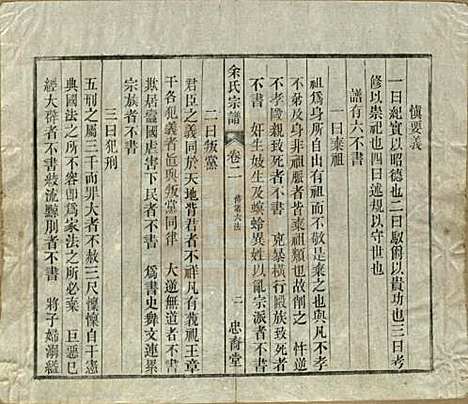 慎要義
一曰紀實以昭德也二曰馭爵以貴功也三曰考
修以崇祀也四曰述規以守世也
譜有六不書
一曰棄祖
祖爲身所由而不敬是棄之也與凡不孝
不弟及身非祖脈者棄祖類也故削之 忤逆
不孝毆親致死者不書 兇暴橫行毆族致死者
不書 奸生妓生及螟蛉異姓以亂宗派者不書
余氏宗譜 卷二 傳著六法 二 忠裔堂
二曰叛黨
君臣之義同於天地背君者不祥凡有蔑視王章
干各犯義者並與叛黨同律 大逆無道者不書
欺居蠹國虐害下民者不書 爲書史舞文連累
宗族者不書
三曰犯刑
五刑之屬三千而罪大者不赦三尺懍懍自干憲
典國法之所不容卽爲家法之所必棄 巨惡已
經大辟者不書殺流黥刖者不書 將子婦溺纔